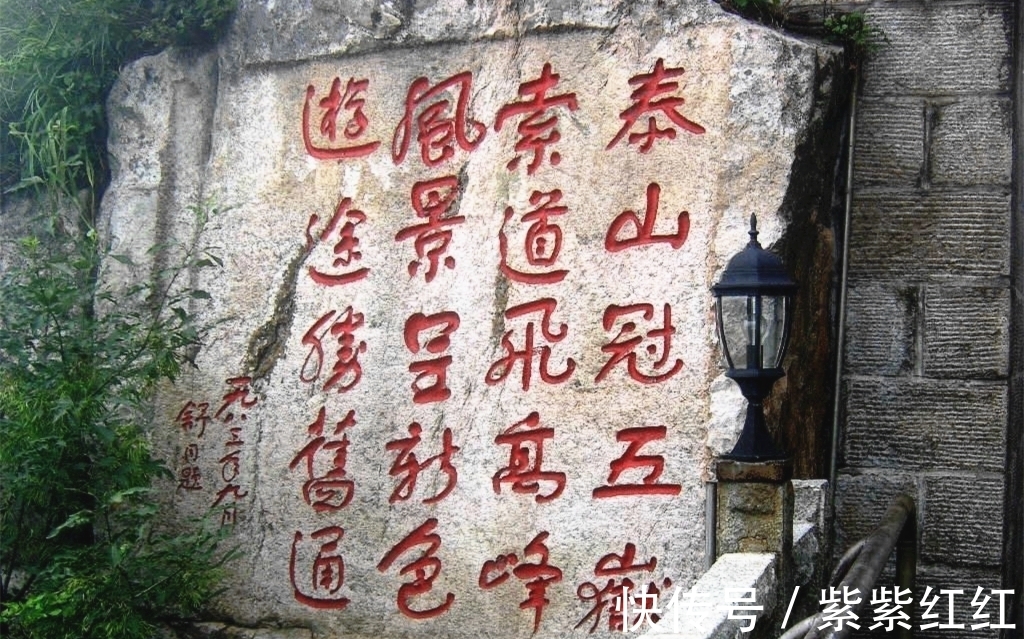 泰山冠五嶽
索道飛高峰
風景呈新色
遊途勝舊通
一九八三年九月
舒同題
快传号 / 紫紫红红